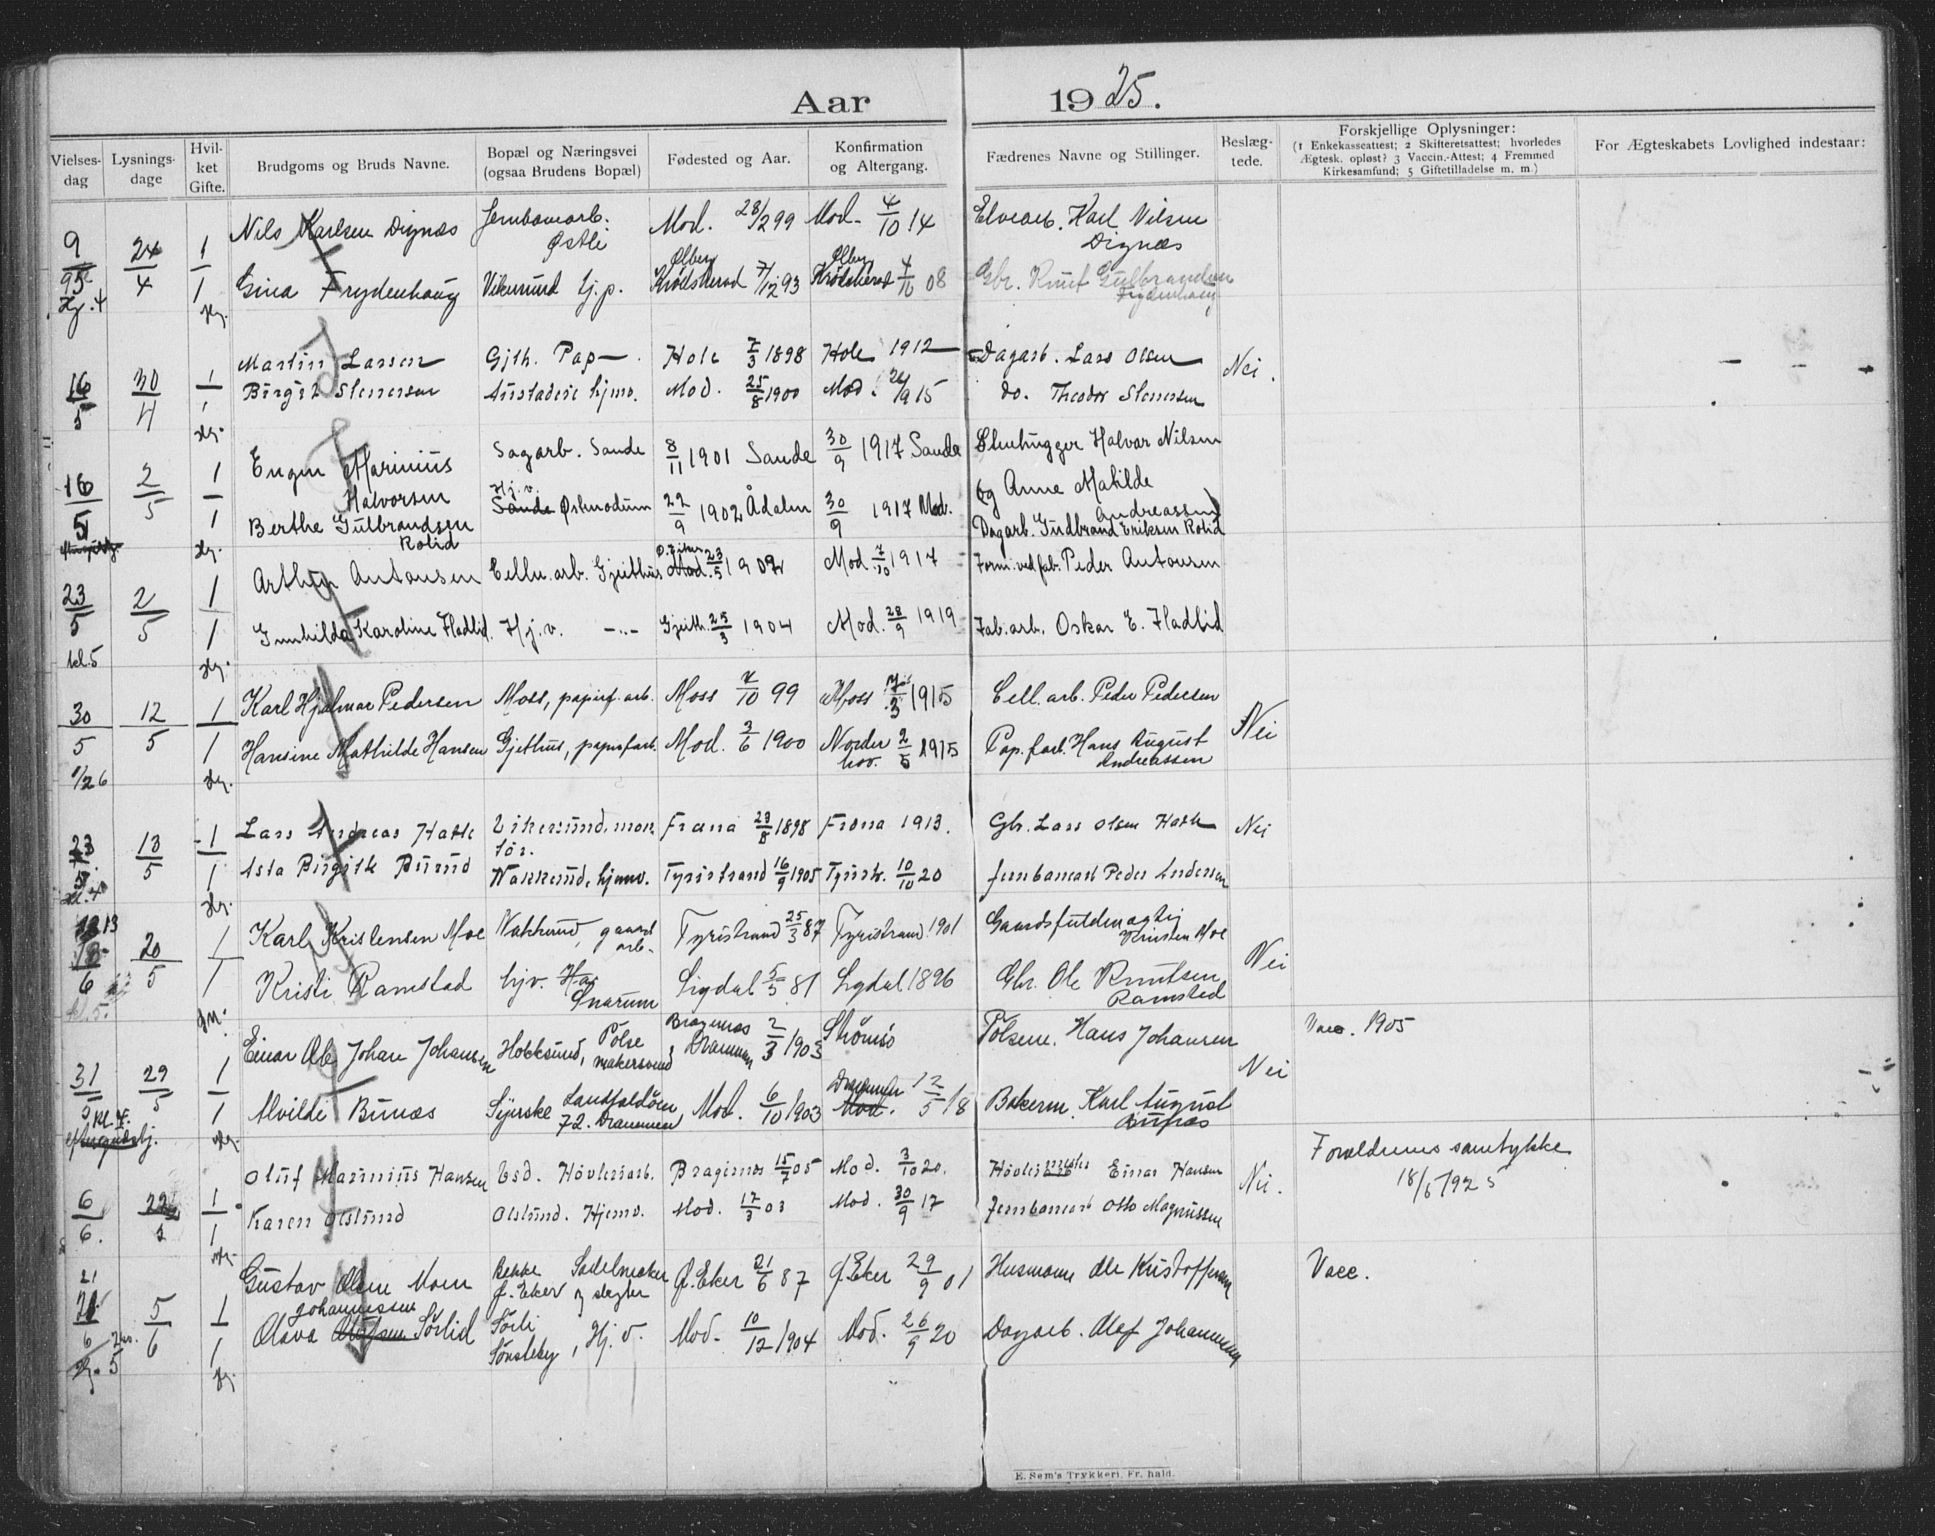 Aar 1925.
Vielses-dag
Lysnings-dage
Hvil-ket Gifte.
Brudgoms og Bruds Navne.
Bopæl og Næringsvei
(ogsaa Brudens Bopæl)
Fødested og Aar.
Konfirmation
og Altergang.
Fædrenes Navne og Stillinger.
Beslæg-tede.
Forskjellige Oplysninger:
(1 Enkekasseattest; 2 Skifteretsattest; hvorledes
Ægtesk. opløst? 3 Vaccin.-Attest; 4 Fremmed
Kirkesamfund; 5 Giftetilladelse m. m.)
For Ægteskabets Lovlighed indestaar:
Nils Karlsen Dignæs Jernbanearb. Mod. 28/2 99 Mod. 4/10 14 Elvearb. Karl Nilsen
Østli Dignæs
9/5 24/4 1
Olberg Olberg
Gina Frydenhaug Vikersund hj.p. Krødsherad 7/12 93 Krødsherad 4/10 08 Gbr. Knut Gulbrandsen
Frydenhaug
Martin Larsen Gjth. Pap Hole 7/3 1898 Hole 1912 Dagarb. Lars Olsen Nei.
16/5 30/4 1
Birgit Stenersen hjmv. Mod. 25/8 1900 Mod. 26/9 15 do. Theodor Stenersen
Eugen Marinius Sagarb. Sande 8/11 1901 Sande 30/9 1917 Sande Stenhugger Halvar Nilsen
Halvorsen og Anne Matilde
16/5 2/5 1 Andreassen
Hj.v.
Berthe Gulbrandsen Sande Østmodum 22/9 1902 Ådalen 30/9 1917 Mod. Dagarb. Gudbrand Eriksen Rolid
Rolid
Arthur Antonsen Cellu.arb. Gjeithus Mod. 23/5 1902 Mod. 7/10 1917 Form. ved fab. Peder Antonsen
23/5 2/5 1
Gunhilda Karoline Hadlid Hj.v. Gjeith. 25/3 1904 Mod. 28/9 1919 Fab.arb. Oskar E. Hadlid
kl.5
Karl Hjalmar Pedersen Moss, papirf.arb. Moss 7/10 99 Moss 7/3 1915 Cell.arb. Peder Pedersen
30/5 12/5 1 Nei
Hansine Mathilde Hansen Gjethus, papirfarb. Mod. 3/6 1900 Norder 2/5 1915 Pap.farb. Hans August
hov. Andreassen
1/2 6
Lars Andreas Hatle Vikersund, mon. Fræna 23/8 1898 Fræna 1913. Gbr. Lars Olsen Hatle Nei
tør.
23/5 13/5 1
Asta Birgitte Burud Nakkerud, hjmv. Tyristrand 16/9 1905 Tyristr. 10/10 20 Jernbanearb Peder Andersen
kl.4
Karl Kristensen Moe Nakkerud, gaard Tyristrand 25/3 87 Tyristrand 1901 Gaardsfuldmægtig
arb. Kristen Moe
13/6 20/5 1 Nei
Kristi Ramstad hjv. Snarum Sigdal 5/5 81 Sigdal 1896 Gbr. Ole Knutsen
Ramstad
kl.5.
Einar Ole Johan Johansen Hokksund, Pølsemakersvend Bragernes Drammen 2/3 1903 Strømsø Pølsem. Hans Johansen Vacc. 1905
31/5 29/5 1 Nei
kl.4.
Alvilde Bunæs Syerske Landfaldøen 72. Drammen Mod. 6/10 1903 Drammen Mod. 12/5 18 Bakerm. Karl August
Bunæs
Oluf Marinius Hansen Høvleriarb. Bragernes 15/7 05 Mod. 3/10 20. Høvlerimester Einar Hansen Nei. Forældrenes samtykke
18/5 1925
6/6. 22/5 1
Karen Olslund Olslund. Hjemv. Mod. 17/3 03 Mod. 30/9 17 Jernbanearb Otto Magnussen
Gustav Olsen Moen Bekke Sadelmaker Ø.Eker 21/6 87 Ø.Eker 29/9 01 Husmann Ole Kristoffersen Vacc.
Ø.Eker og slagter
21/6 5/6 1
Johannessen
Olava Olafsen Sørlid Sørli Mod. 10/12 1904 Mod. 26/9 20 Dagarb. Olaf Johannessen
Sønsteby, Hj.v.
E. Sem's Trykkeri, Fr.hald.